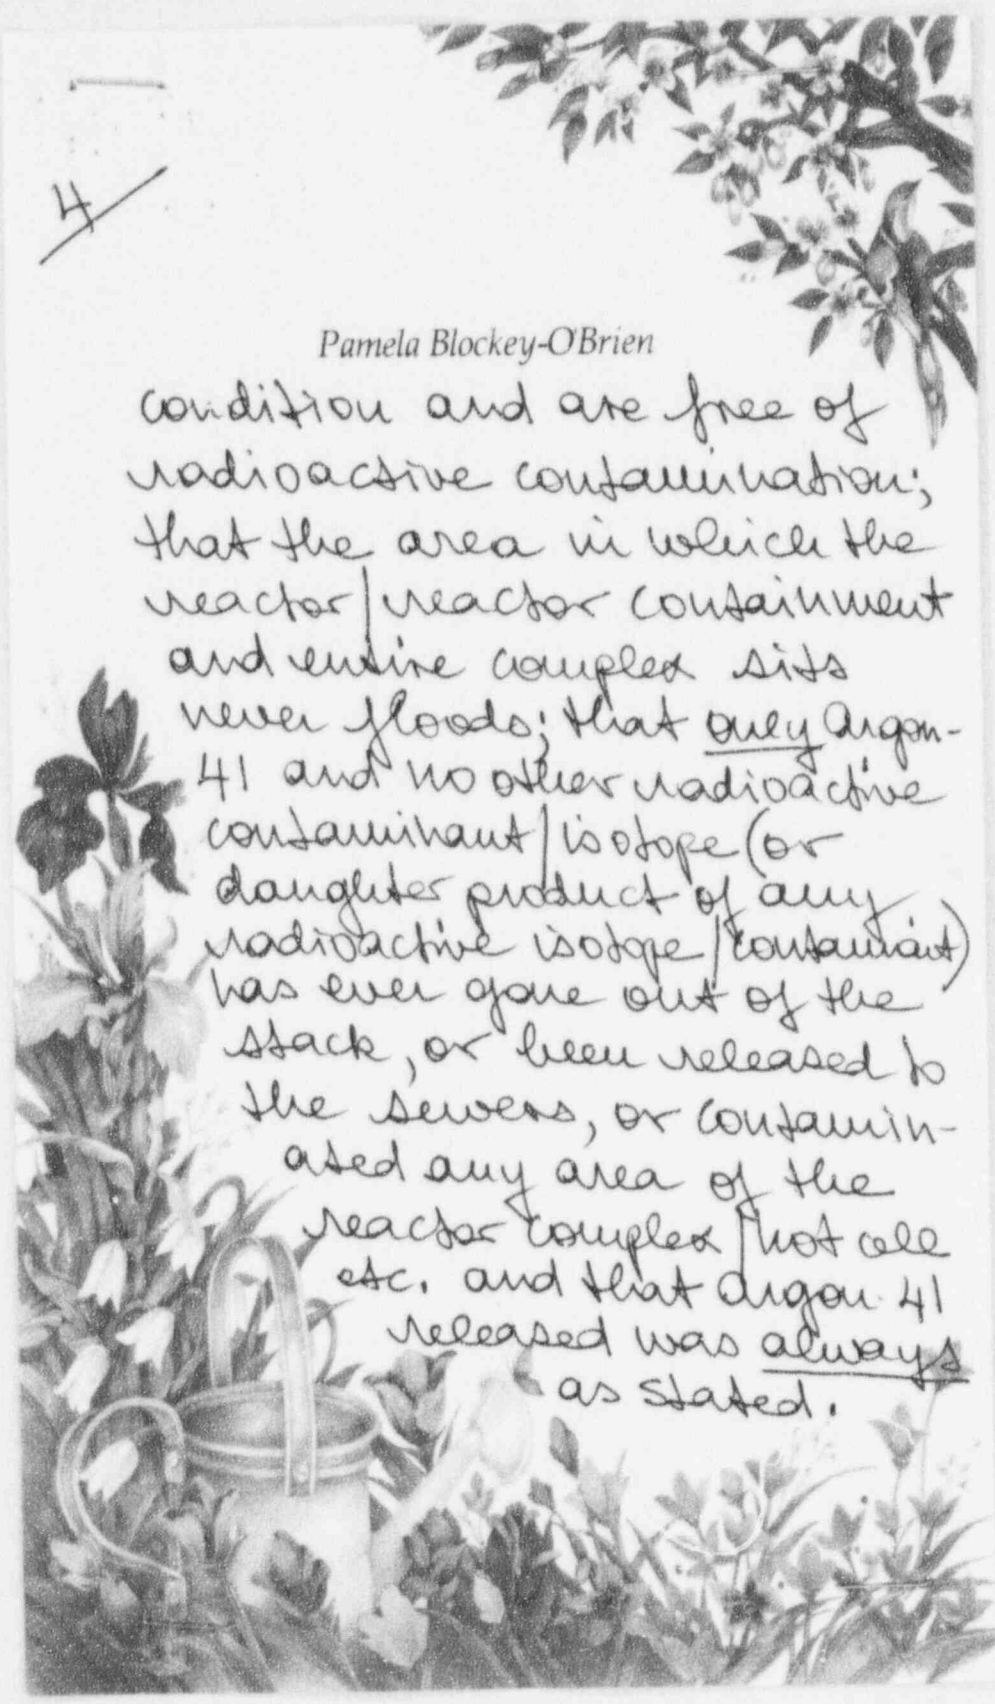 4
Pamela Blockey-O'Brien
condition and are free of
radioactive contamination;
that the area in which the
reactor/reactor containment
and entire complex sits
never floods; that only Argon-
41 and no other radioactive
contaminant/isotope (or
daughter product of any
radioactive isotope/contaminant)
has ever gone out of the
stack, or been released to
the sewers, or contamin-
ated any area of the
reactor complex/hot cell
etc. and that Argon 41
released was always
as stated.